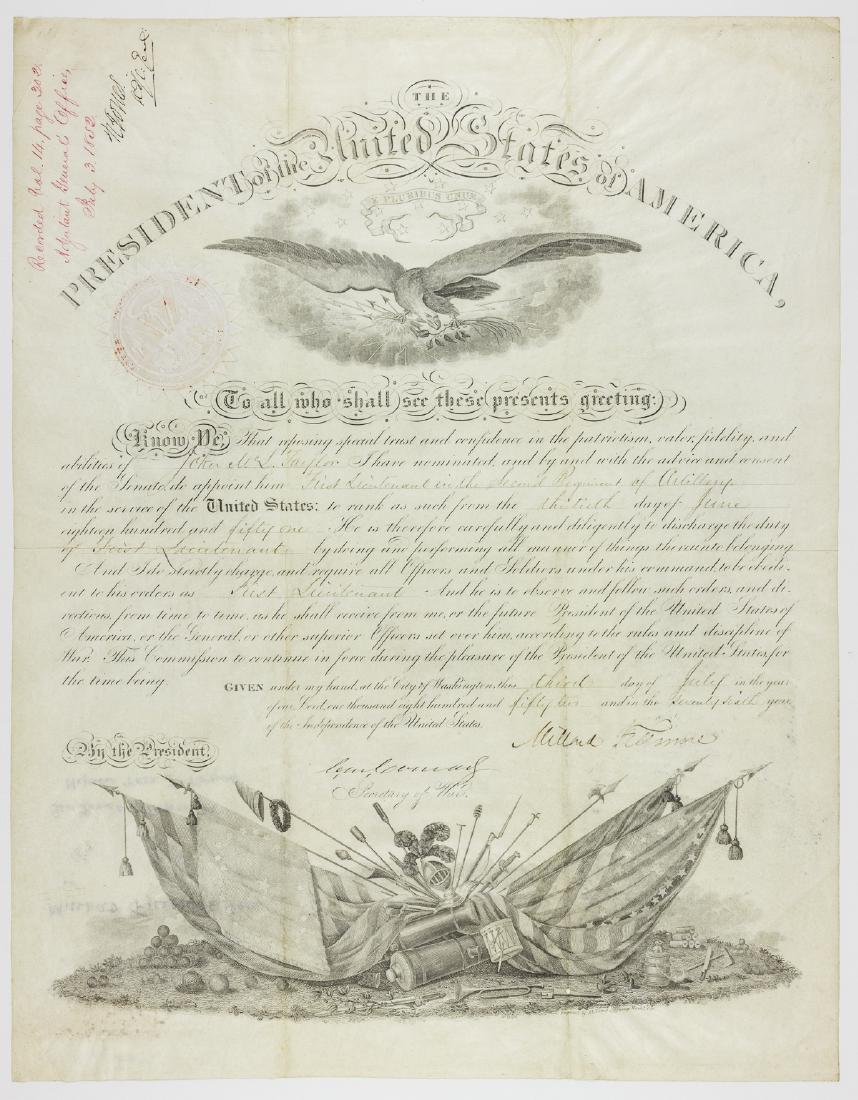 Recorded Vol. 14, page 202.
Adjutant General's Office,
July 3, 1852.
THE
PRESIDENT of the United States of AMERICA,
E PLURIBUS UNUM
To all who shall see these presents greeting:
Know Ye, That reposing special trust and confidence in the patriotism, valor, fidelity, and
abilities of John McL. Taylor I have nominated, and by and with the advice and consent
of the Senate, do appoint him First Lieutenant in the Second Regiment of Artillery
in the service of the United States: to rank as such from the thirtieth day of June
eighteen hundred and fifty one. He is therefore carefully and diligently to discharge the duty
of First Lieutenant by doing and performing all manner of things thereunto belonging.
And I do strictly charge, and require all Officers and Soldiers under his command, to be obedi-
ent to his orders as First Lieutenant And he is to observe and follow such orders, and di-
rections, from time to time, as he shall receive from me, or the future President of the United States of
America, or the General, or other superior Officers set over him, according to the rules and discipline of
War. This Commission to continue in force during the pleasure of the President of the United States, for
the time being.
GIVEN under my hand, at the City of Washington, this third day of July in the year
of our Lord, one thousand eight hundred and fifty two and in the Seventy sixth year
of the Independence of the United States.
Millard Fillmore
By the President,
C. M. Conrad
Secretary of War.